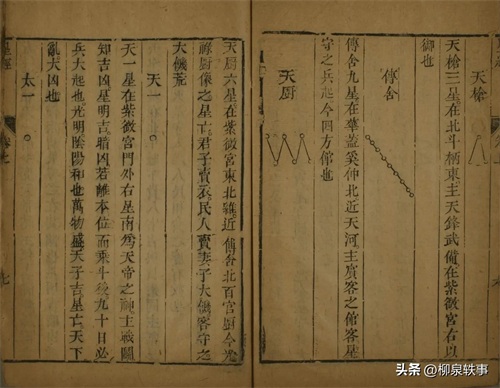 天槍
天槍三星在北斗柄東主天鋒武備在紫微宮右以
御也
傳舍
傳舍九星在華蓋奚仲北近天河主賓客之館客星
守之兵起今四方館也
天厨
天厨六星在紫微宮東北維近傳舍北百宮厨今光
祿厨像之星亡君子賣衣民人賣妻子大饑客守之
大饑荒
天一
天一星在紫微宮門外右星南爲天帝之神主戰鬬
知吉凶星明吉暗凶若離本位而乘斗後九十日必
兵大起也光明陰陽和也萬物盛天子吉星亡天下
亂大凶也
太一
星經
七
头条 @柳泉轶事